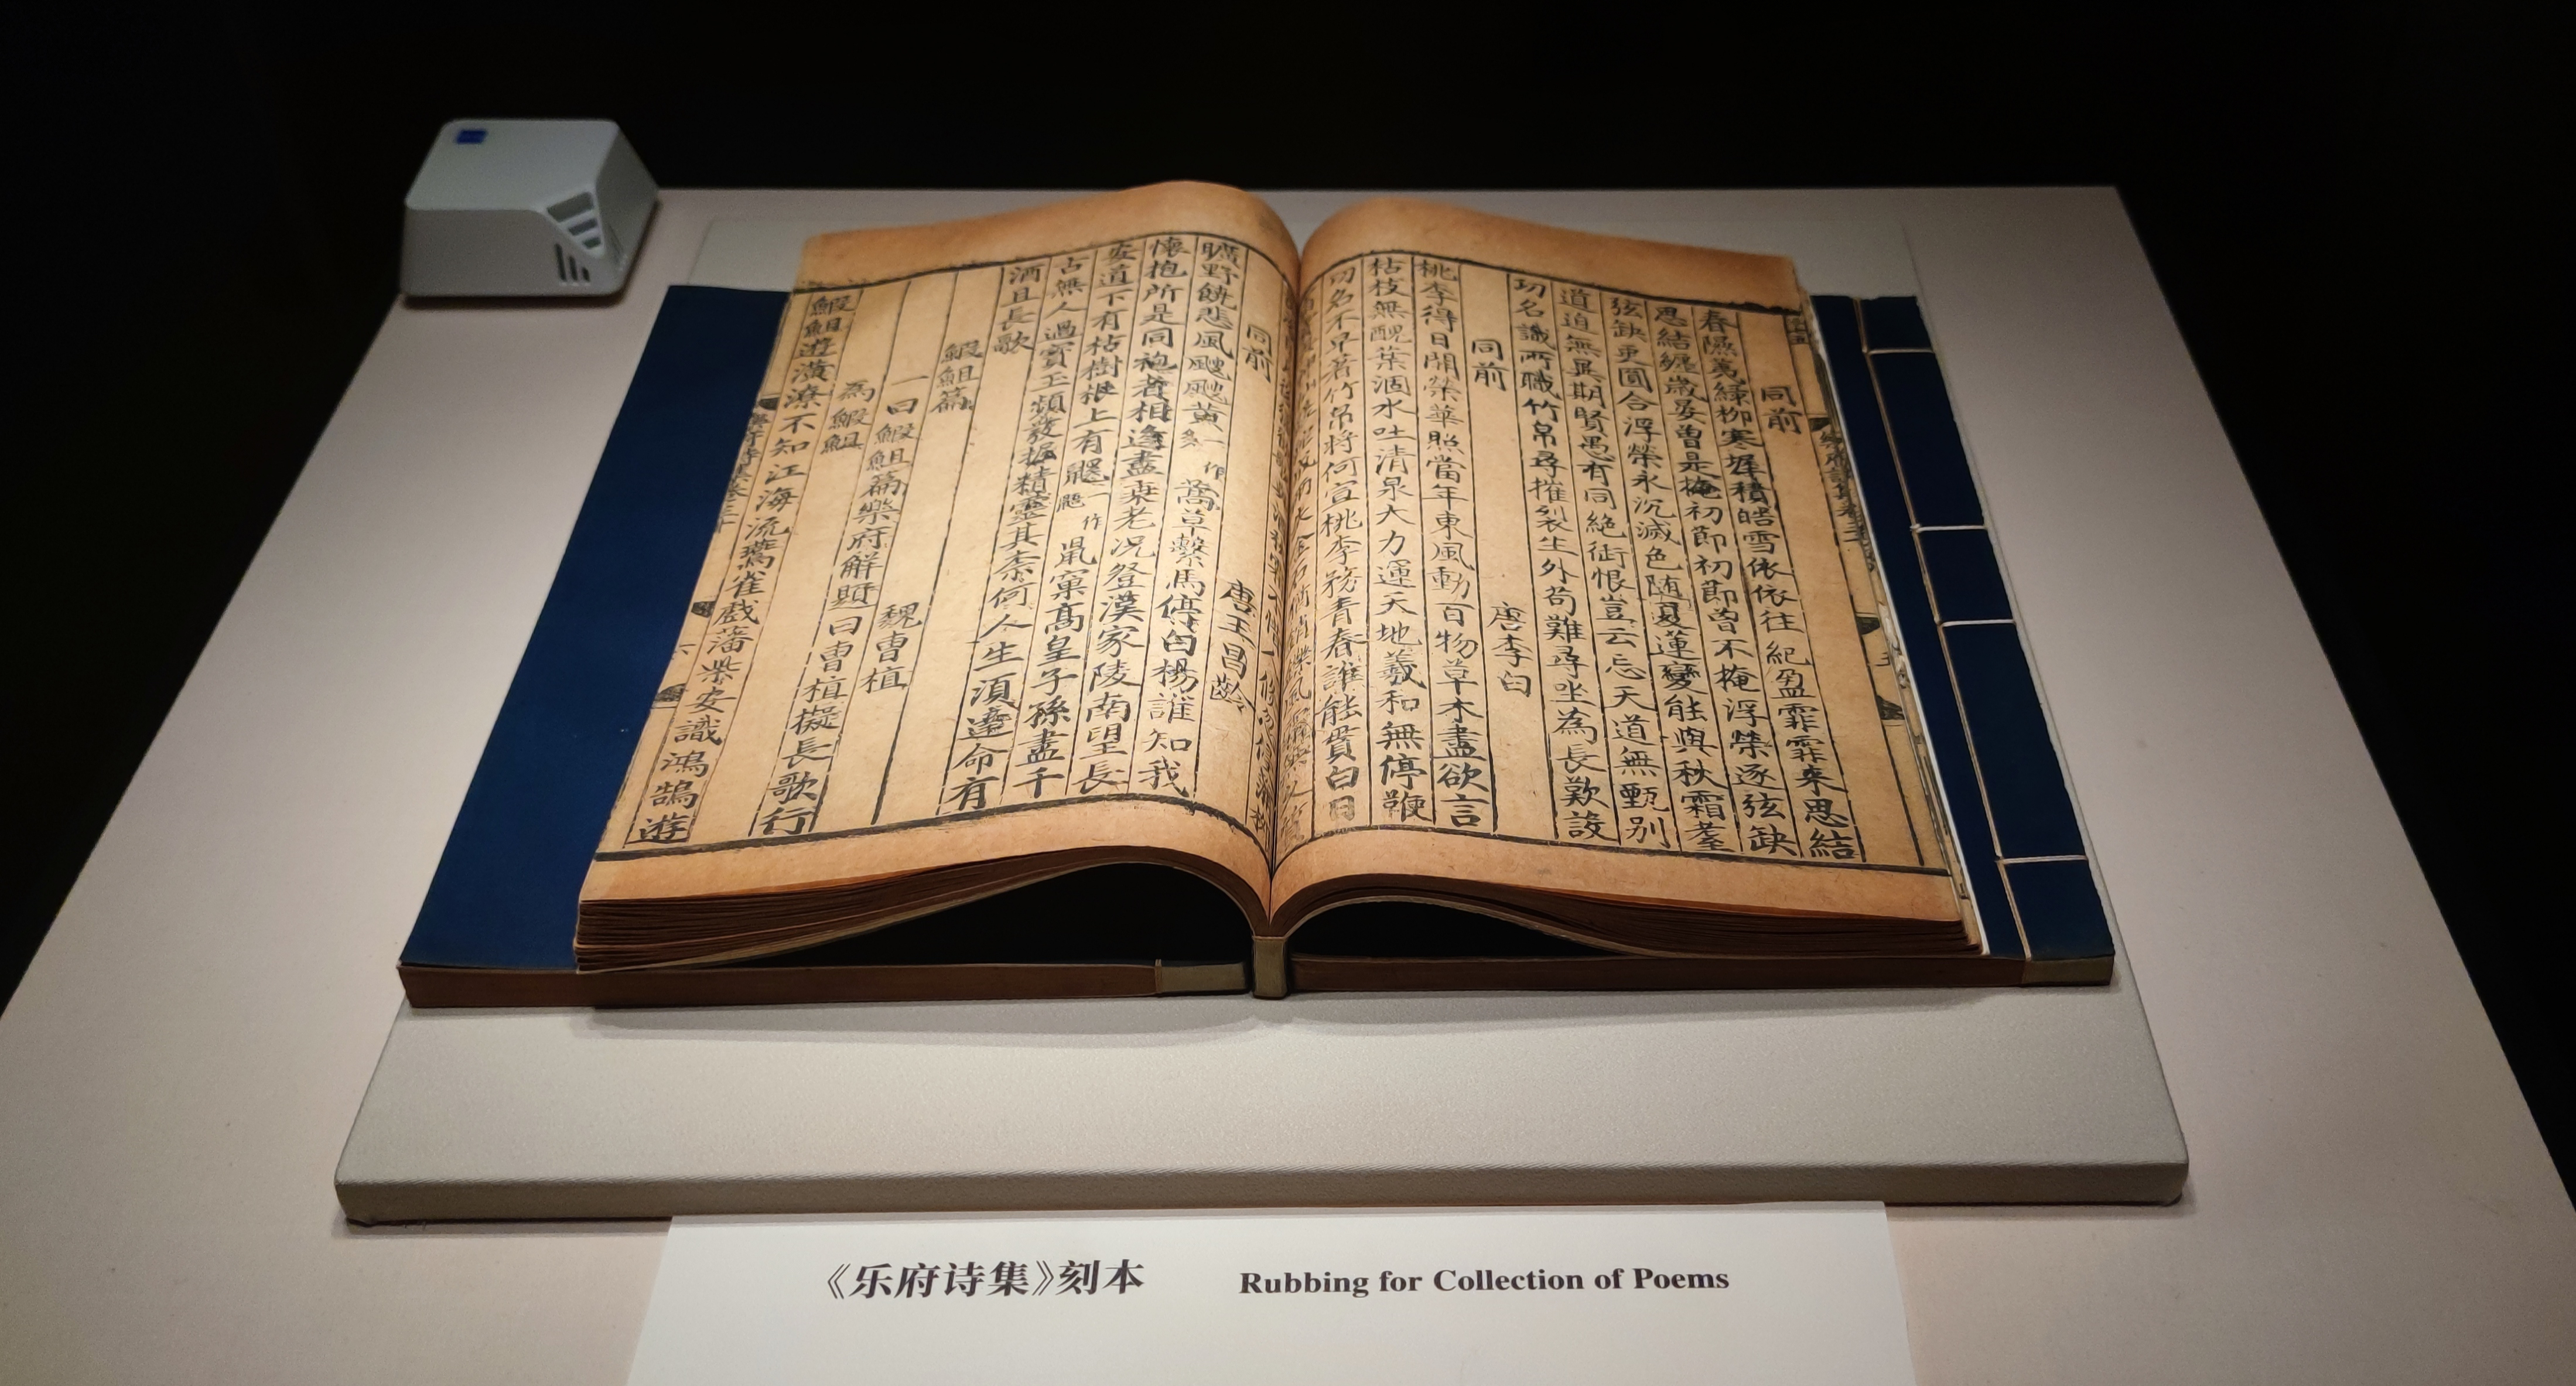 同前
春隰荑綠柳寒墀積皓雪依依往紀盈霏霏來思結
思結纏歲晏曾是掩初節初節曾不掩浮榮逐弦缺
弦缺更圓合浮榮永沉滅色隨夏蓮變能與秋霜耋
道迫無異期賢愚有同絕銜恨豈云忘天道無甄别
功名識所職竹帛尋摧裂生外苟難尋坐為長歎設
同前 唐李白
桃李得日開榮華照當年東風動百物草木盡欲言
枯枝無醜葉涸水吐清泉大力運天地羲和無停鞭
功名不早著竹帛將何宣桃李務青春誰能貰白日
同前 唐王昌齡
曠野饒悲風颼颼黃 一作 蒿草繫馬停白楊誰知我
懷抱所是同袍者相逢盡衰老況登漢家陵南望長
安道下有枯樹根上有鼯 一作 鼠窠高皇子孫盡千
古無人過寶玉頻發掘精靈其柰何人生須達命有
酒且長歌
鰕䱇篇
一曰鰕䱇篇 魏曹植
樂府解題曰曹植擬長歌行
為鰕䱇
鰕䱇遊潢潦不知江海流燕雀戲藩柴安識鴻鵠遊
《乐府诗集》刻本 Rubbing for Collection of Poems